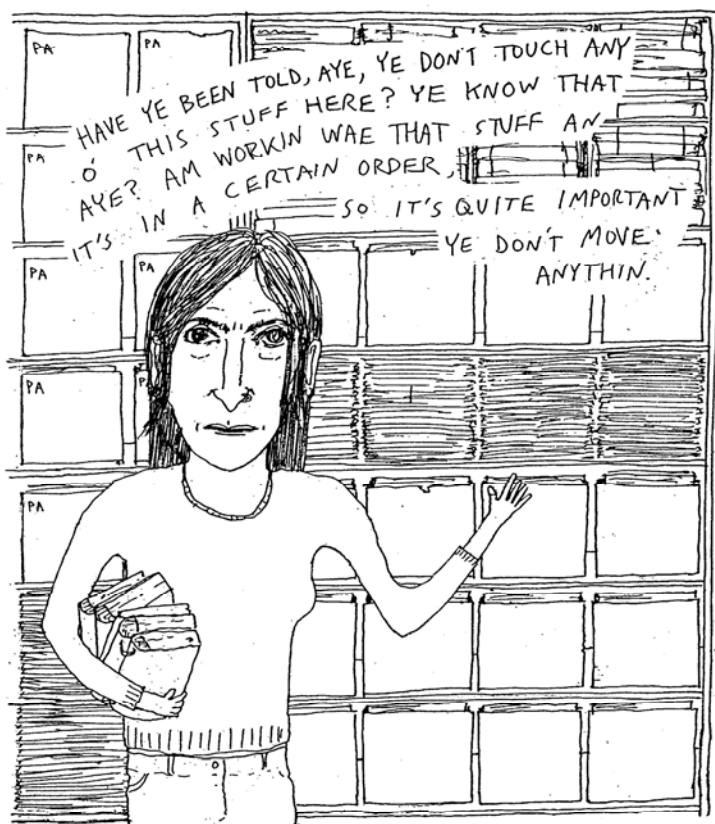 PA PA
HAVE YE BEEN TOLD, AYE, YE DON'T TOUCH ANY
O' THIS STUFF HERE? YE KNOW THAT
AYE? AM WORKIN WAE THAT STUFF AN
IT'S IN A CERTAIN ORDER,
SO IT'S QUITE IMPORTANT
YE DON'T MOVE
ANYTHIN.
PA
PA PA
PA
PA